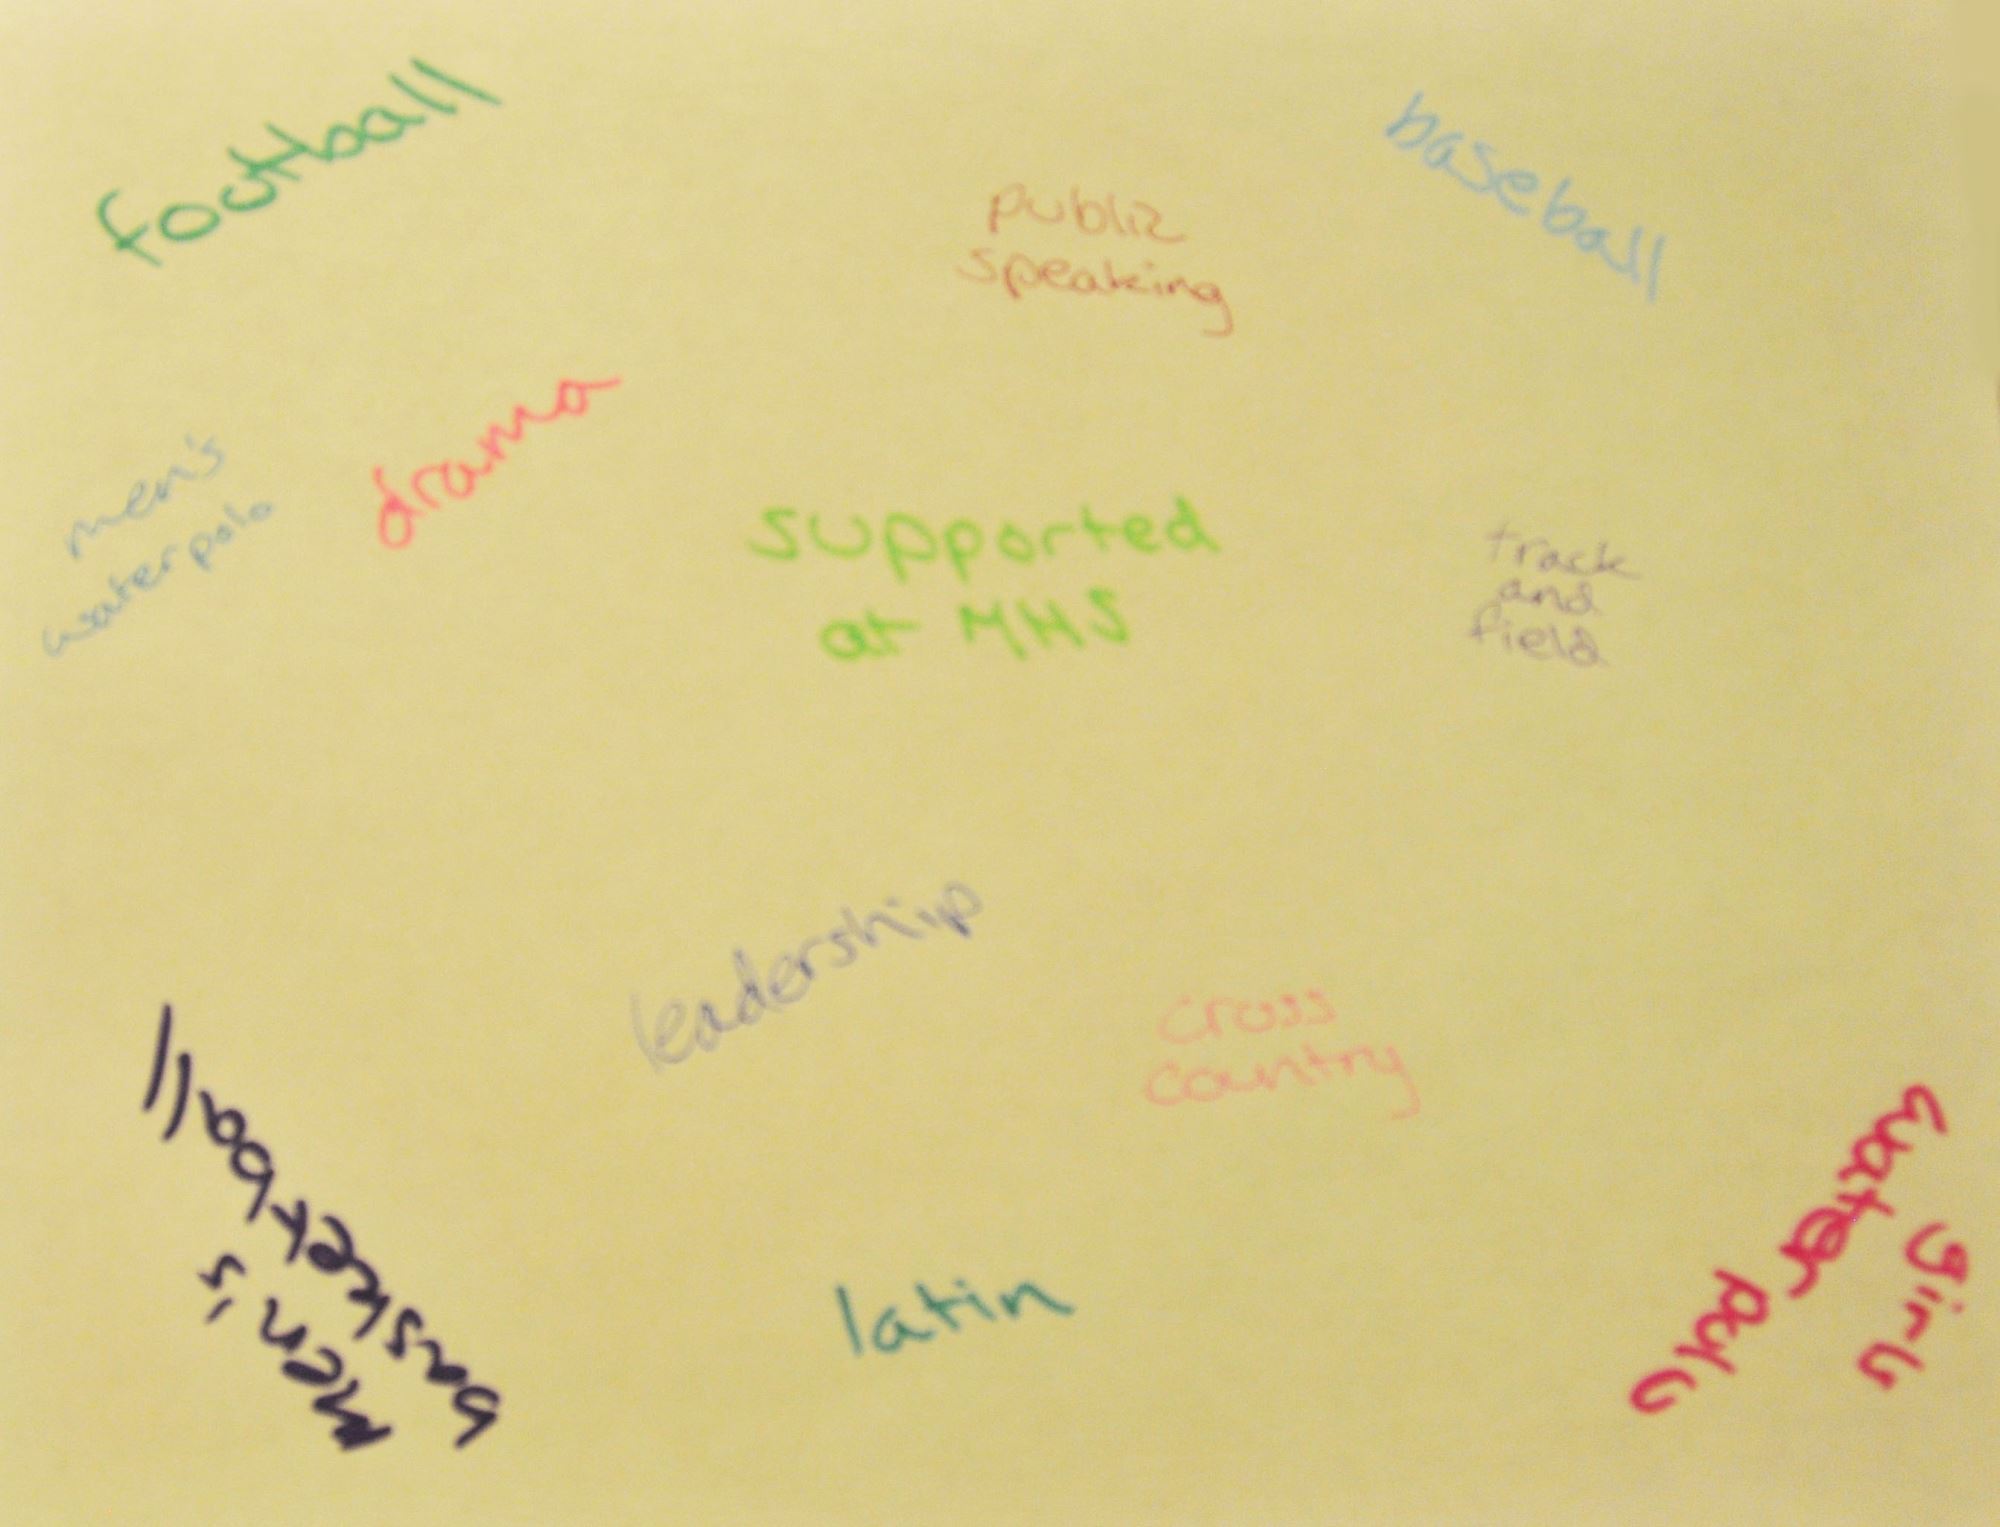 football
public
speaking
baseball
men's
waterpolo
drama
supported
at MHS
track
and
field
leadership
cross
country
men's
basketball
latin
girls
water polo